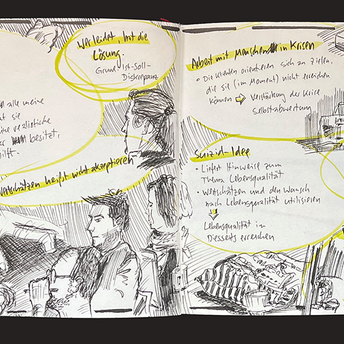 Wer leidet, hat die
Lösung.
Grund: Ist-Soll-
Diskrepanz
alle meine
sie
besitzt,
Wertschätzen heißt nicht akzeptieren
Arbeit mit Menschen in Krisen
• Die Klienten orientieren sich an Zielen,
die sie (im Moment) nicht erreichen
können ⇨ Verstärkung der Krise
Selbstabwertung
Suizid-Idee
• Liefert Hinweise zum
Thema Lebensqualität
• Wertschätzen und den Wunsch
nach Lebensqualität utilisieren
⇩
Lebensqualität im
Diesseits erreichen